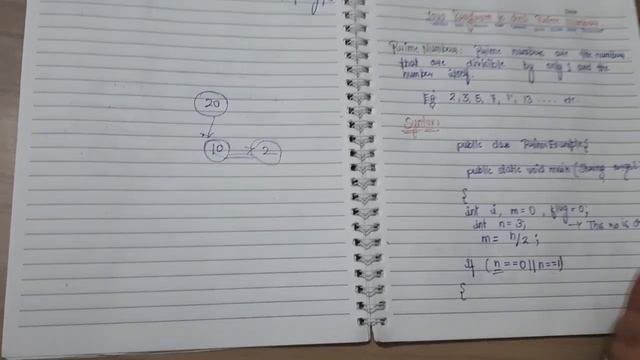 20
10 × 2
Java Program to find Prime Numbers
Prime Numbers: Prime numbers are the numbers
that are divisible by only 1 and the
number itself.
Eg 2, 3, 5, 7, 11, 13 .... etc
Syntax:
public class PrimeExample {
public static void main (String
{
int i, m=0, flag=0;
int n=3; → This no is
m= n/2;
if (n==0||n==1)
{